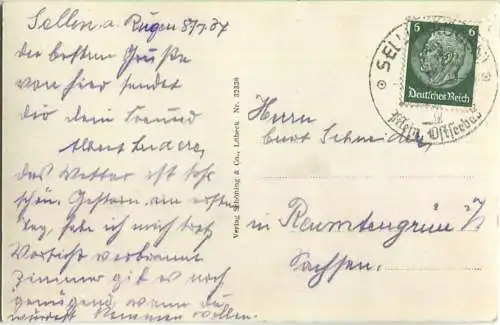 Sellin a. Rügen 8/7.37
die besten Grüße
von hier sendet
dir dein Freund
Albert
das Wetter ist sehr
schön. Gestern, am ersten
Tag, habe ich mich trotz
Vorsicht verbrannt
Zimmer gib es noch
genügend, wenn du
würdest kommen wollen.
Verlag Schöning & Co., Lübeck. Nr. 32338
6 6
Deutsches Reich
SELLIN
Ostseebad
Herrn
Curt Schneider,
in Raumtengrün i/
Sachsen.